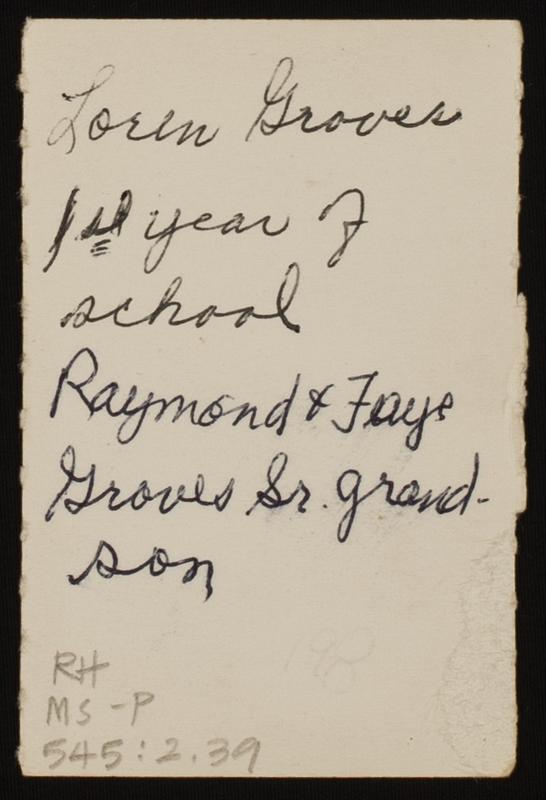 Loren Groves
1st year of
school
Raymond & Faye
Groves Sr. grand-
son
RH
MS-P
545:2.39